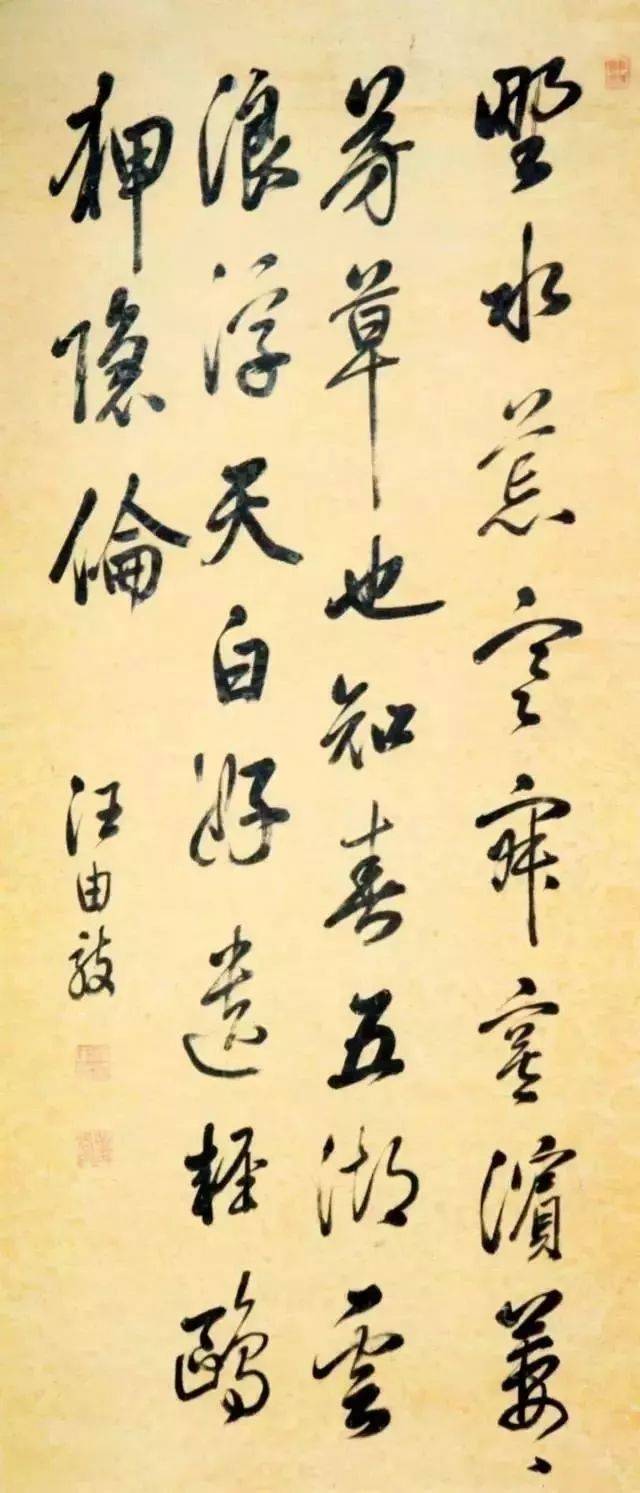 野水荒寒寂寞濱萋〻
芳草也知春五湖雲
浪浮天白好遣輕鷗
狎隱倫
汪由敦